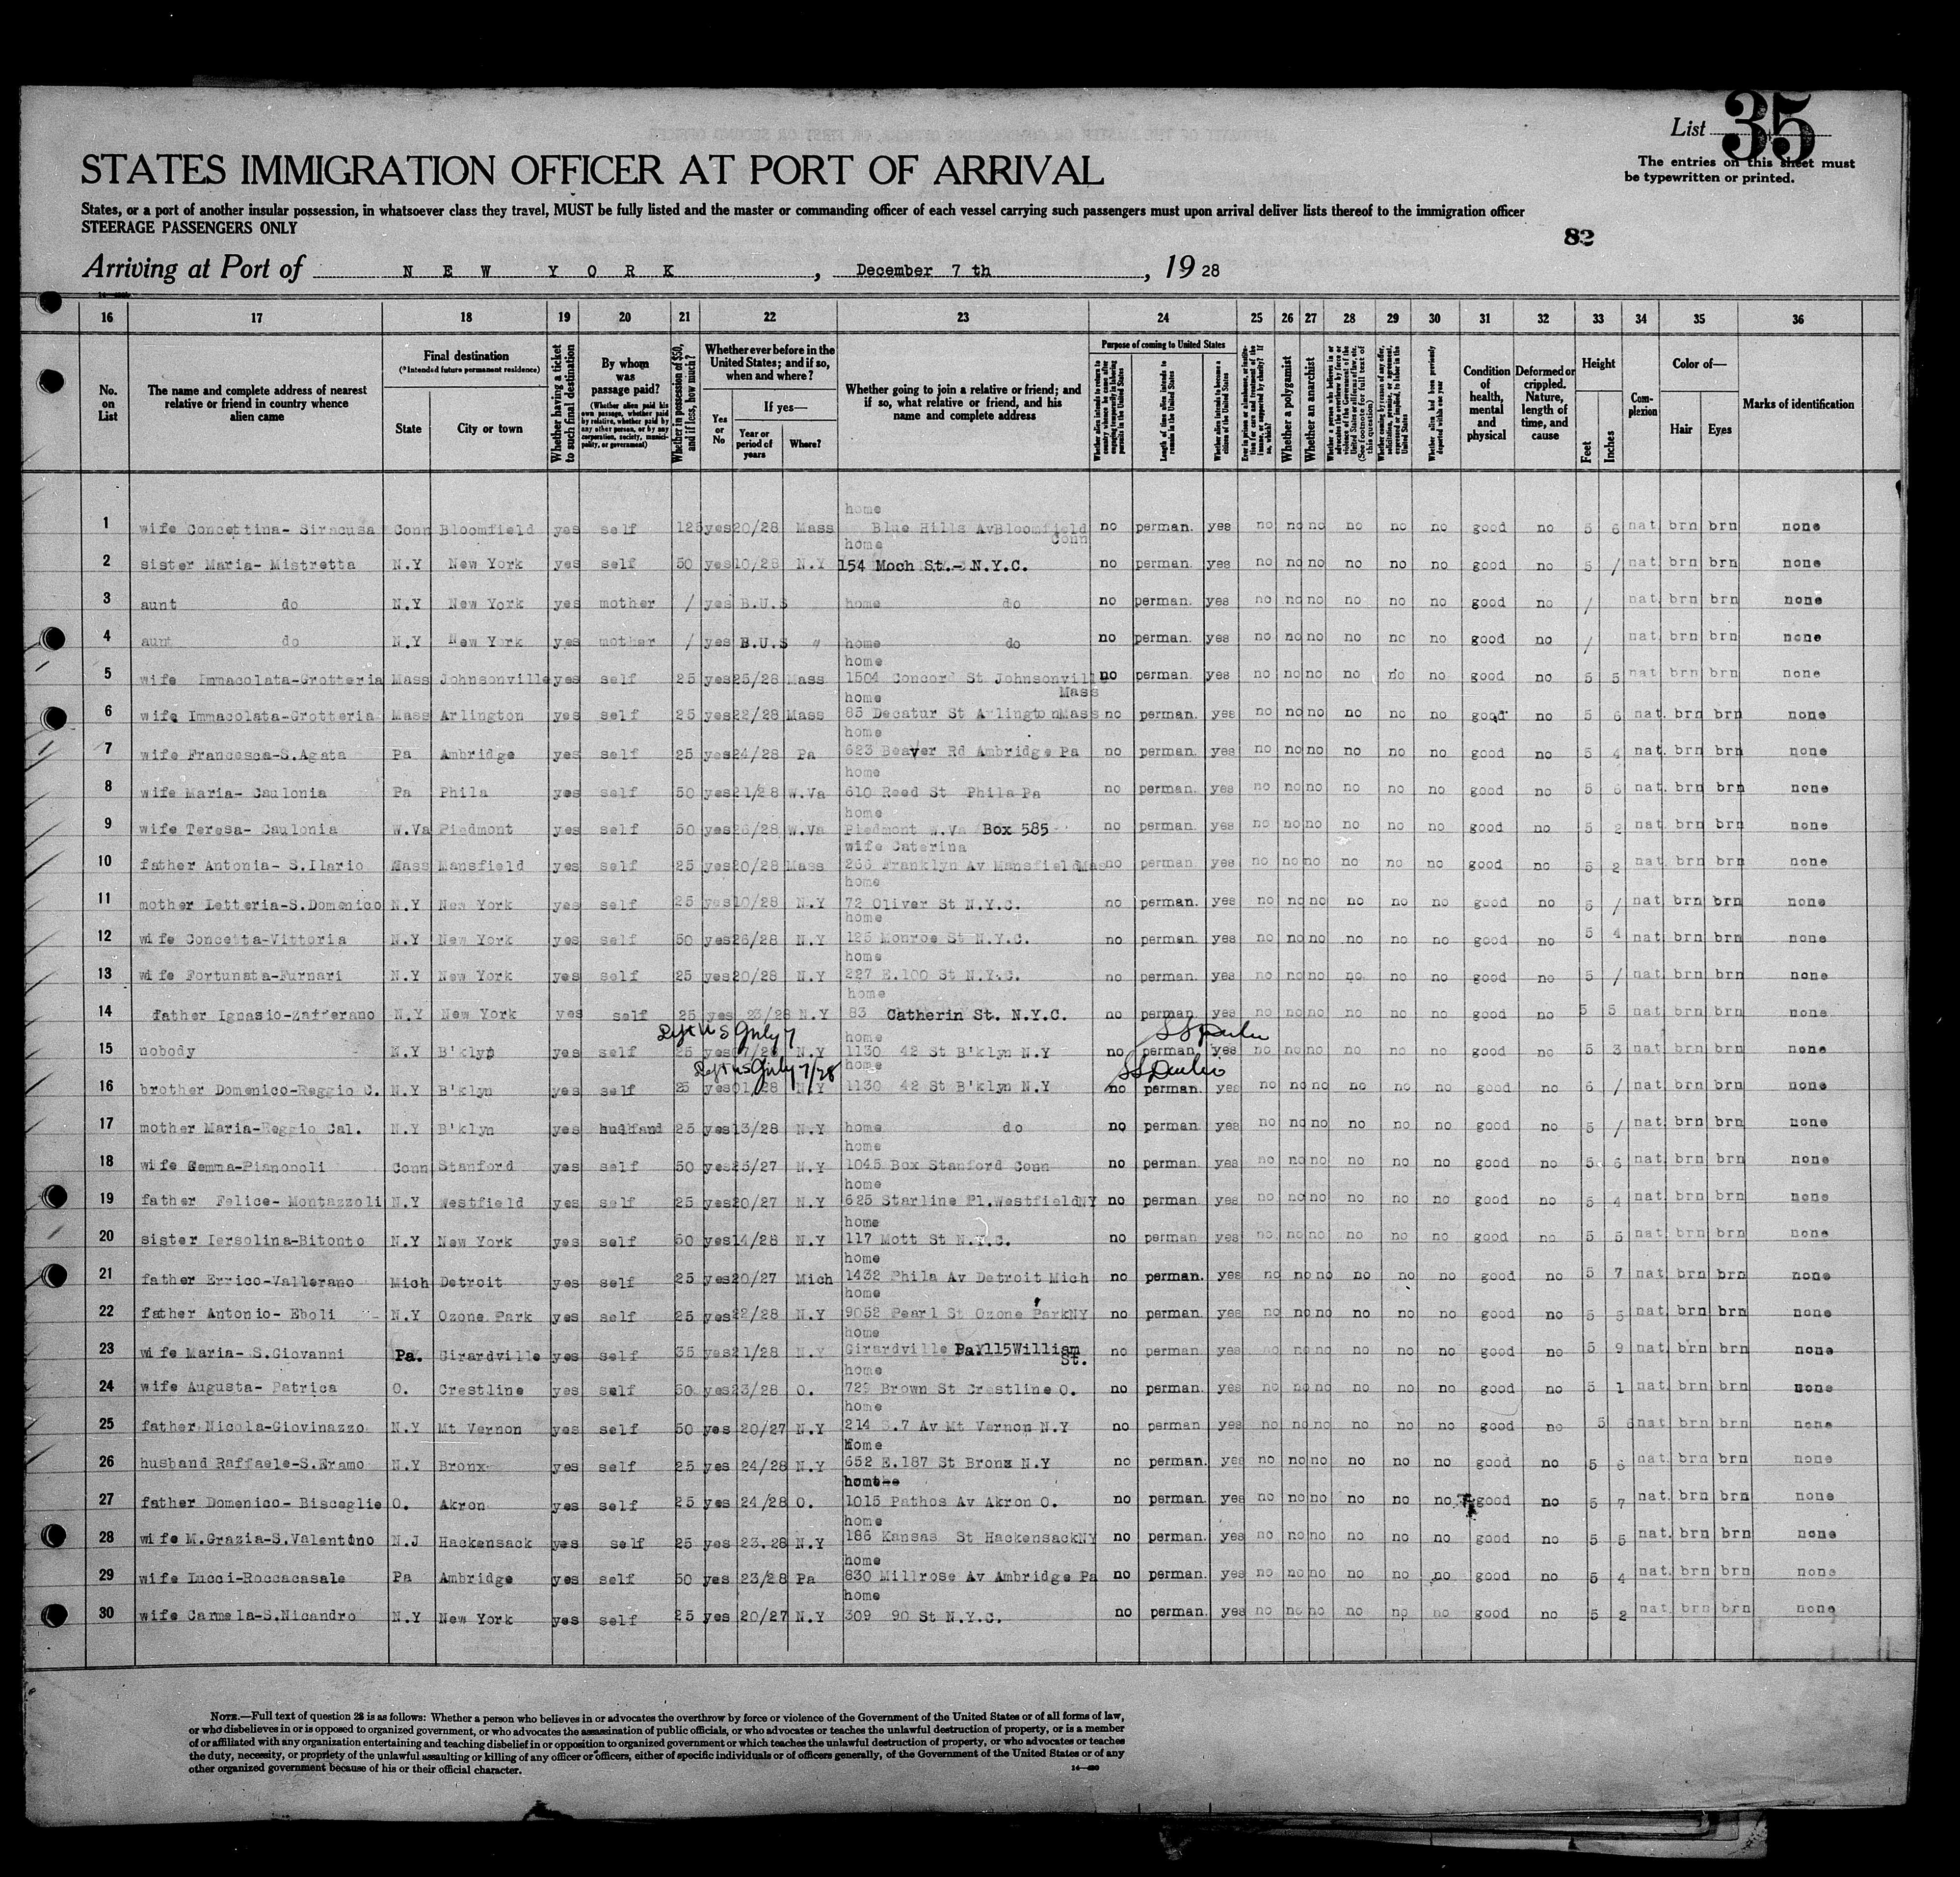 List 35
The entries on this sheet must
be typewritten or printed.
STATES IMMIGRATION OFFICER AT PORT OF ARRIVAL
States, or a port of another insular possession, in whatsoever class they travel, MUST be fully listed and the master or commanding officer of each vessel carrying such passengers must upon arrival deliver lists thereof to the immigration officer
STEERAGE PASSENGERS ONLY
82
Arriving at Port of NEW YORK, December 7 th, 19 28
16 17 18 19 20 21 22 23 24 25 26 27 28 29 30 31 32 33 34 35 36
No. on List
The name and complete address of nearest relative or friend in country whence alien came
Final destination
(*Intended future permanent residence)
State
City or town
Whether having a ticket to such final destination
By whom was passage paid?
(Whether alien paid his own passage, whether paid by relative, whether paid by any other person, or by any corporation, society, municipality, or government)
Whether in possession of $50, and if less, how much?
Whether ever before in the United States; and if so, when and where?
Yes or No
If yes—
Year or period of years
Where?
Whether going to join a relative or friend; and if so, what relative or friend, and his name and complete address
Purpose of coming to United States
Whether a polygamist
Whether an anarchist
Condition of health, mental and physical
Deformed or crippled. Nature, length of time, and cause
Height
Feet
Inches
Complexion
Color of—
Hair
Eyes
Marks of identification
home
1 wife Concettina- Siracusa Conn Bloomfield yes self 125 yes 20/28 Mass Blue Hills Av Bloomfield Conn no perman. yes no no no no no no good no 5 6 nat. brn brn none
home
2 sister Maria- Mistretta N.Y New York yes self 50 yes 10/28 N.Y 154 Moch St.- N.Y.C. no perman. yes no no no no no no good no 5 / nat. brn brn none
3 aunt do N.Y New York yes mother / yes B.U.S home do no perman. yes no no no no no no good no / nat. brn brn none
4 aunt do N.Y New York yes mother / yes B.U.S " home do no perman. yes no no no no no no good no / nat. brn brn none
home
5 wife Immacolata-Grotteria Mass Johnsonville yes self 25 yes 25/28 Mass 1504 Concord St Johnsonvill Mass no perman. yes no no no no no no good no 5 5 nat. brn brn none
home
6 wife Immacolata-Grotteria Mass Arlington yes self 25 yes 22/28 Mass 85 Decatur St Arlington Mass no perman. yes no no no no no no good no 5 6 nat. brn brn none
home
7 wife Francesca-S.Agata Pa Ambridge yes self 25 yes 24/28 Pa 623 Beaver Rd Ambridge Pa no perman. yes no no no no no no good no 5 4 nat. brn brn none
home
8 wife Maria- Caulonia Pa Phila yes self 50 yes 21/28 W.Va 610 Reed St Phila Pa no perman. yes no no no no no no good no 5 nat. brn brn none
home
9 wife Teresa- Caulonia W.Va Piedmont yes self 50 yes 26/28 W.Va Piedmont W.Va Box 585 no perman. yes no no no no no no good no 5 2 nat. brn brn none
wife Caterina
10 father Antonia- S.Ilario Mass Mansfield yes self 25 yes 20/28 Mass 266 Franklyn Av Mansfield Mas no perman. yes no no no no no no good no 5 2 nat. brn brn none
home
11 mother Letteria-S.Domenico N.Y New York yes self 25 yes 10/28 N.Y 72 Oliver St N.Y.C. no perman. yes no no no no no no good no 5 / nat. brn brn none
home
12 wife Concetta-Vittoria N.Y New York yes self 50 yes 26/28 N.Y 125 Monroe St N.Y.C. no perman. yes no no no no no no good no 5 4 nat. brn brn none
home
13 wife Fortunata-Furnari N.Y New York yes self 25 yes 20/28 N.Y 227 E.100 St N.Y.C. no perman. yes no no no no no no good no 5 / nat. brn brn none
home
14 father Ignazio-Zafferano N.Y New York yes self 25 yes 23/28 N.Y 83 Catherin St. N.Y.C. no perman. yes no no no no no no good no 5 5 nat. brn brn none
Left US July 7
home
15 nobody N.Y B'klyn yes self 25 yes N.Y 1130 42 St B'klyn N.Y no perman. yes no no no no no no good no 5 3 nat. brn brn none
Left US July 7/28
home
16 brother Domenico-Reggio C. N.Y B'klyn yes self 25 yes 01/28 N.Y 1130 42 St B'klyn N.Y no perman. yes no no no no no no good no 6 / nat. brn brn none
17 mother Maria-Reggio Cal. N.Y B'klyn yes husband 25 yes 13/28 N.Y home do no perman yes no no no no no no good no 5 / nat. brn brn none
home
18 wife Gemma-Pianopoli Conn Stanford yes self 50 yes 25/27 N.Y 1045 Box Stanford Conn no perman. yes no no no no no no good no 5 6 nat. brn brn none
home
19 father Felice- Montazzoli N.Y Westfield yes self 25 yes 20/27 N.Y 625 Starline Pl. Westfield NY no perman. yes no no no no no no good no 5 4 nat. brn brn none
home
20 sister Iersolina-Bitonto N.Y New York yes self 50 yes 14/28 N.Y 117 Mott St N.Y.C. no perman yes no no no no no no good no 5 5 nat. brn brn none
home
21 father Errico-Vallerano Mich Detroit yes self 25 yes 20/27 Mich 1432 Phila Av Detroit Mich no perman. yes no no no no no no good no 5 7 nat. brn brn none
home
22 father Antonio- Eboli N.Y Ozone Park yes self 25 yes 22/28 N.Y 9052 Pearl St Ozone Park NY no perman. yes no no no no no no good no 5 5 nat. brn brn none
home
23 wife Maria- S.Giovanni Pa. Girardville yes self 35 yes 21/28 N.Y Girardville Pa 115 William St. no perman. yes no no no no no no good no 5 9 nat. brn brn none
home
24 wife Augusta- Patrica O. Crestline yes self 50 yes 23/28 O. 729 Brown St Crestline O. no perman. yes no no no no no no good no 5 1 nat. brn brn none
home
25 father Nicola-Giovinazzo N.Y Mt Vernon yes self 50 yes 20/27 N.Y 214 S.7 Av Mt Vernon N.Y no perman yes no no no no no no good no 5 6 nat. brn brn none
home
26 husband Raffaele-S.Eramo N.Y Bronx yes self 25 yes 24/28 N.Y 652 E.187 St Bronx N.Y no perman. yes no no no no no no good no 5 6 nat. brn brn none
home
27 father Domenico- Bisceglie O. Akron yes self 25 yes 24/28 O. 1015 Pathos Av Akron O. no perman. yes no no no no no no good no 5 7 nat. brn brn none
home
28 wife M.Grazia-S.Valentino N.J Hackensack yes self 25 yes 23.28 N.Y 186 Kansas St Hackensack NY no perman. yes no no no no no no good no 5 5 nat. brn brn none
home
29 wife Lucci-Roccacasale Pa Ambridge yes self 50 yes 23/28 Pa 830 Millrose Av Ambridge Pa no perman. yes no no no no no no good no 5 4 nat. brn brn none
home
30 wife Carmela-S.Nicandro N.Y New York yes self 25 yes 20/27 N.Y 309 90 St N.Y.C. no perman. yes no no no no no no good no 5 2 nat. brn brn none
NOTE.—Full text of question 28 is as follows: Whether a person who believes in or advocates the overthrow by force or violence of the Government of the United States or of all forms of law,
or who disbelieves in or is opposed to organized government, or who advocates the assassination of public officials, or who advocates or teaches the unlawful destruction of property, or is a member
of or affiliated with any organization entertaining and teaching disbelief in or opposition to organized government or which teaches the unlawful destruction of property, or who advocates or teaches
the duty, necessity, or propriety of the unlawful assaulting or killing of any officer or officers, either of specific individuals or of officers generally, of the Government of the United States or of any
other organized government because of his or their official character.